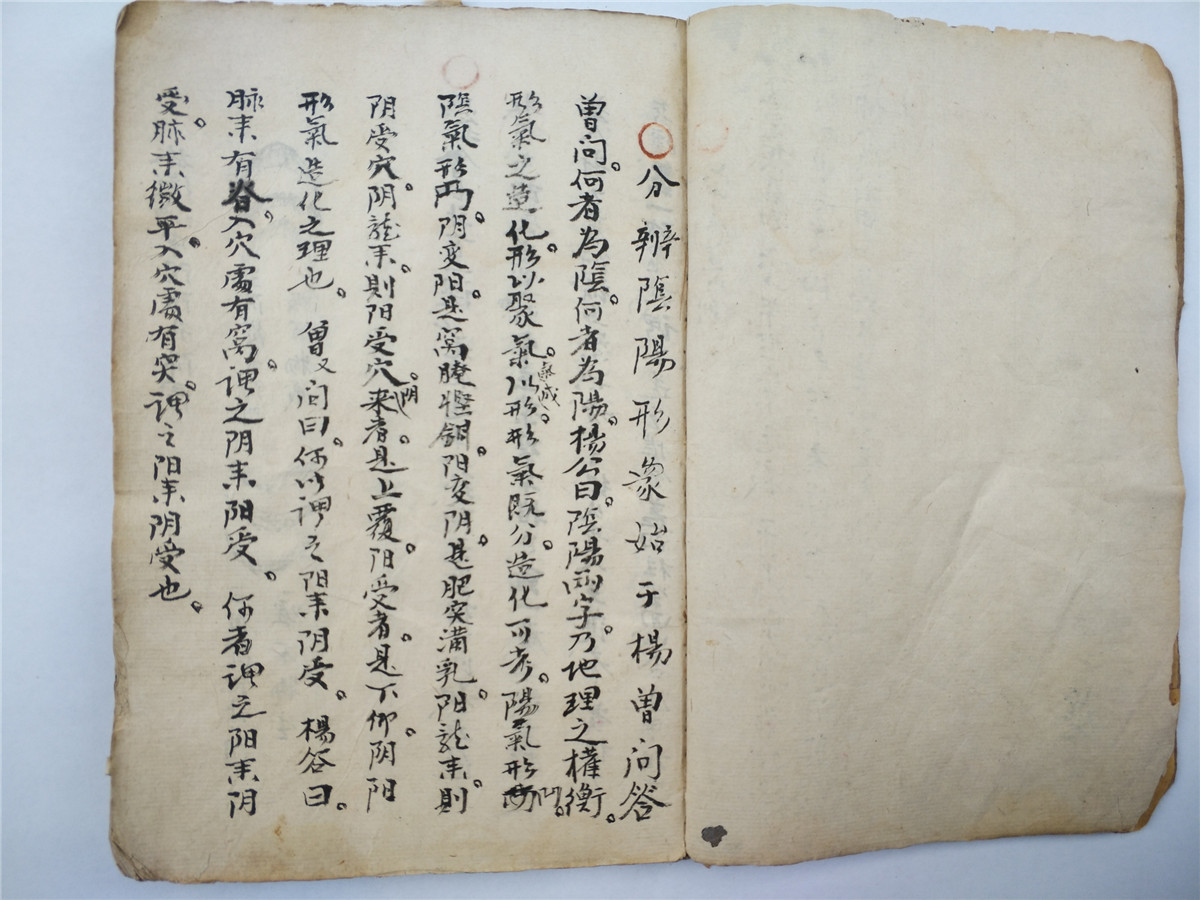 分辨陰陽形象始于楊曾問答
曾问。何者為陰。何者為陽。楊公曰。陰陽两字。乃地理之權衡。
形氣之造化。形以聚氣。氣以成形。形氣既分。造化可考。陽氣形凹。
陰氣形凸。阴变阳。是窩腌鉗。阳变阴。是肥突满乳。阳龍来。則
阴受穴。阴龍来。則阳受穴。阴来者。是上覆。阳受者。是下仰。阴阳
形氣造化之理也。曾又问曰。何以谓之阳来阴受。楊答曰。
脉来有脊。入穴處有窩。谓之阴来阳受。何者谓之阳来阴
受。脉来微平。入穴處有突。谓之阳来阴受也。